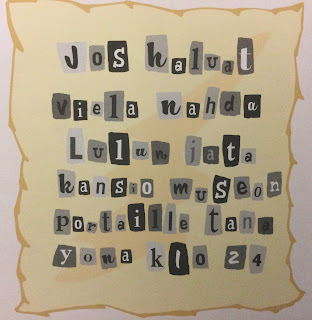 Jos haluat
viela nahda
Lulun jata
kansio museon
portaille tana
yona klo 24